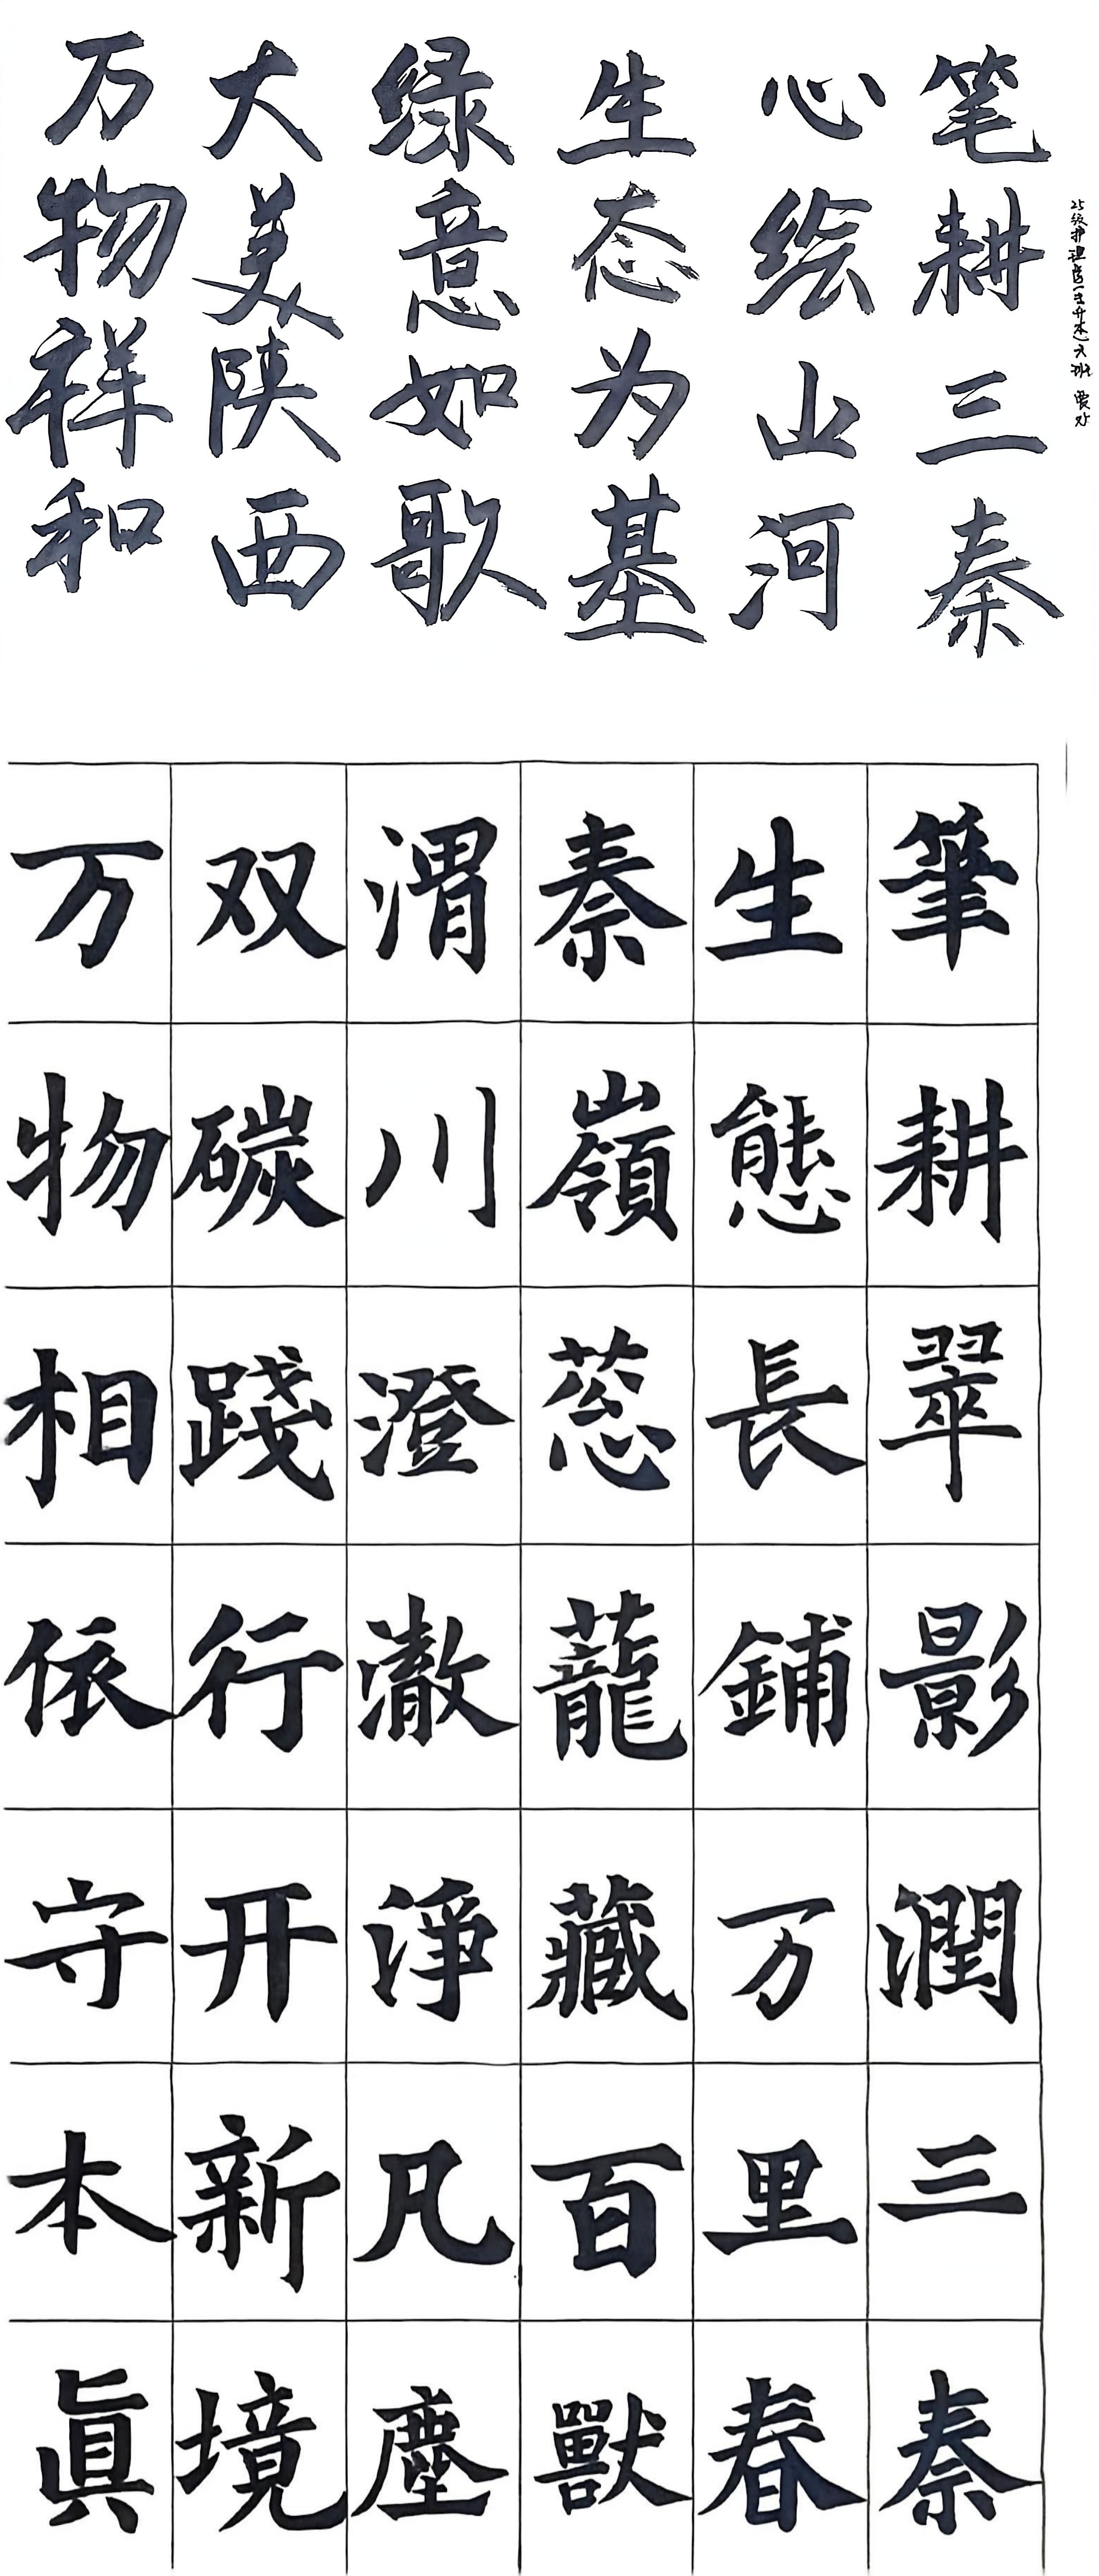 笔耕三秦
心绘山河
生态为基
绿意如歌
大美陕西
万物祥和
筆耕翠影潤三秦
生態長鋪万里春
秦嶺蓯蘢藏百獸
渭川澄澈淨凡塵
双碳踐行开新境
万物相依守本真